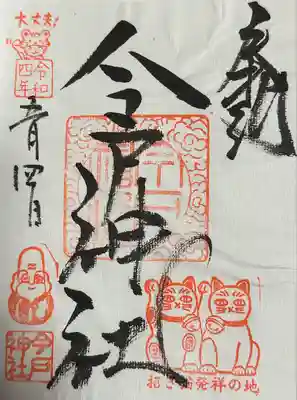 奉拝
今戸神社
招き猫発祥の地
大丈夫!
令和四年
五月四日
今戸神社